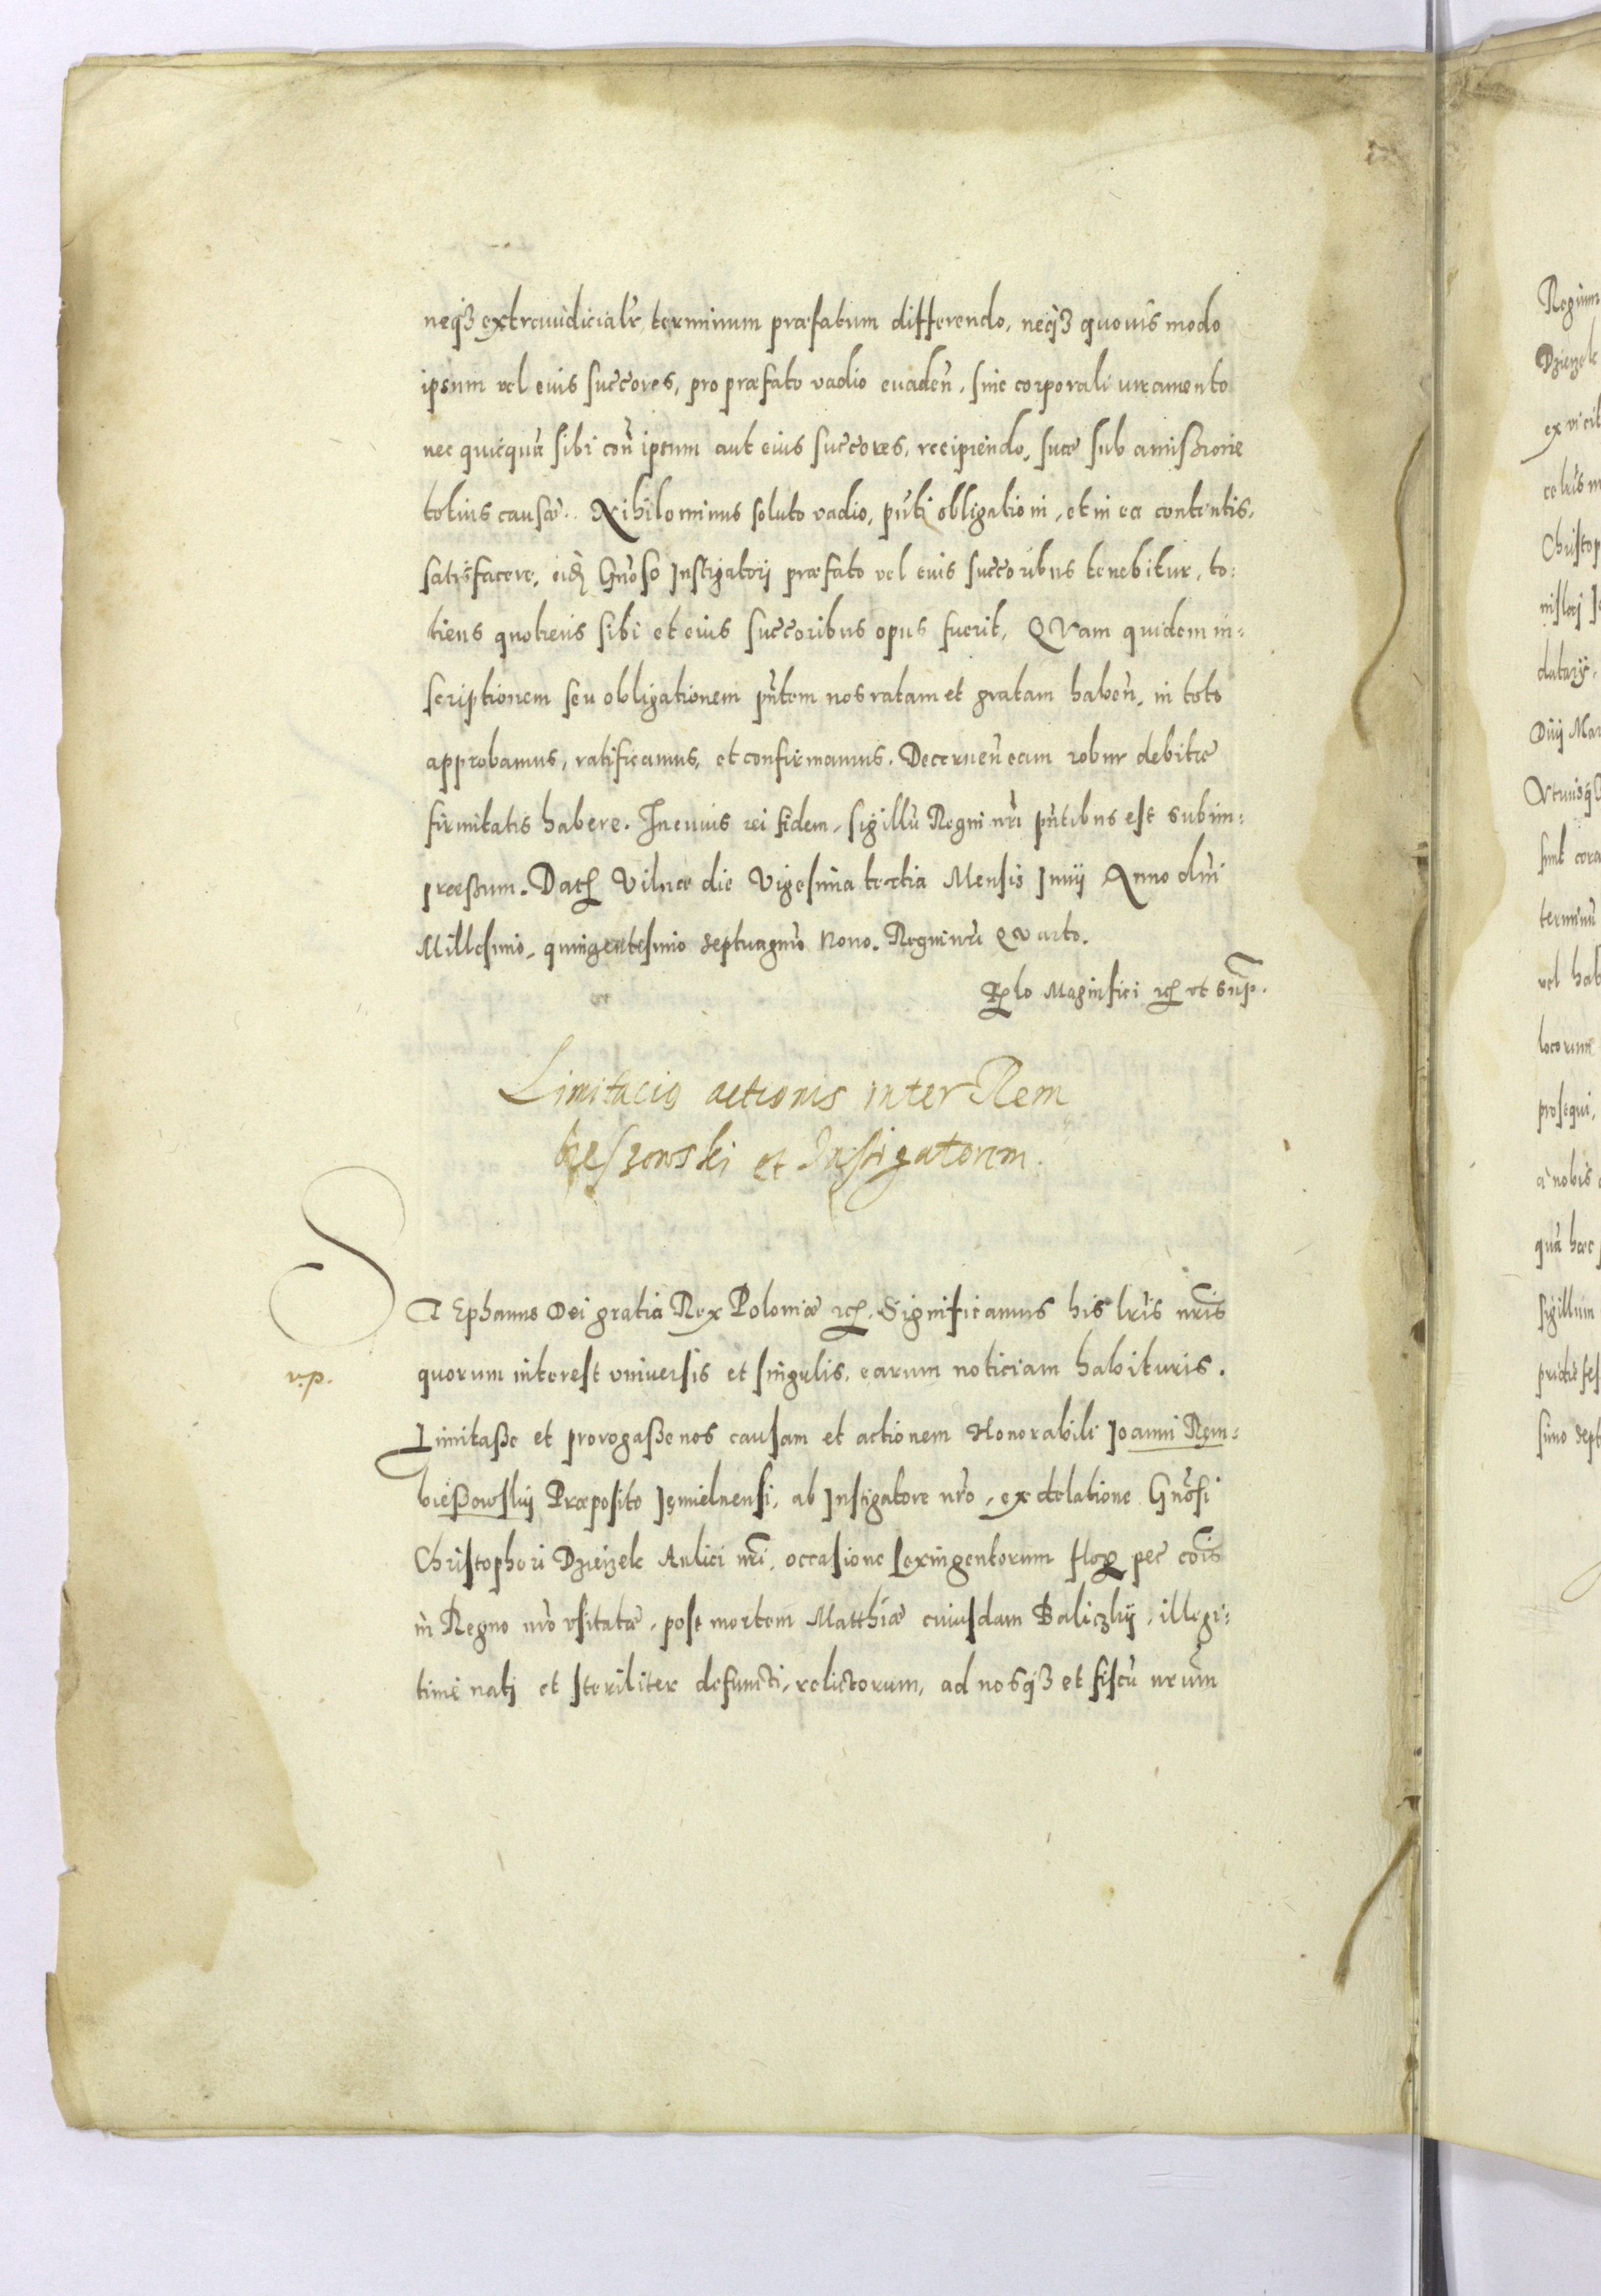 neqȝ extraiudicialr̃, terminum præfatum differendo, neqȝ quouis modo
ipsum vel eius succ̃ores, pro præfato vadio euadeñ, sine corporali iuramento
nec quicquã sibi coñ ipsum aut eius succ̃ores, recipiendo, suæ sub amissione
totius causæ. Nihilominus soluto vadio, pñti obligationi, et in ea contentis,
satisfacere, Gñoso Instigatori præfato vel eius succ̃oribus tenebitur, to:
tiens quotiens sibi et eius succ̃oribus opus fuerit, QVam quidem in:
scriptionem seu obligationem pñtem nos ratam et gratam habeñ, in toto
approbamus, ratificamus, et confirmamus. Decerneñ eam robur debitæ
firmitatis habere. In cuius rei fidem, sigillũ Regni nr̃i pñtibus est subim:
præssum. Datȝ Vilnæ die Vigesima tertia Mensis Junij Anno dñi
Millesimo, quingentesimo septuagm̃o Nono. Regni nr̃i QVarto.
Rẽlo Magnifici etc̃ ut sup̃.
Limitacio actionis inter Rem
bieszowski et Instigatorem.
STEphanus Dei gratia Rex Poloniæ etc̃. Significamus his lr̃is nr̃is
v.p.
quorum interest vniuersis et singulis, earum noticiam habituris.
Limitasse et prorogasse nos causam et actionem Honorabili Joanni Rem:
bieszowskij Præposito Jemielnensi, ab Instigatore nr̃o, ex delatione Gñosi
Christophori Dzierzek Aulici nr̃i, occasione sexingentorum flor pec̃ cõis
in Regno nr̃o vsitatæ, post mortem Matthiæ cuiusdam Baliczkij, illegi:
time nati et steriliter defuncti, relictorum, ad nosqȝ et fiscũ nr̃um